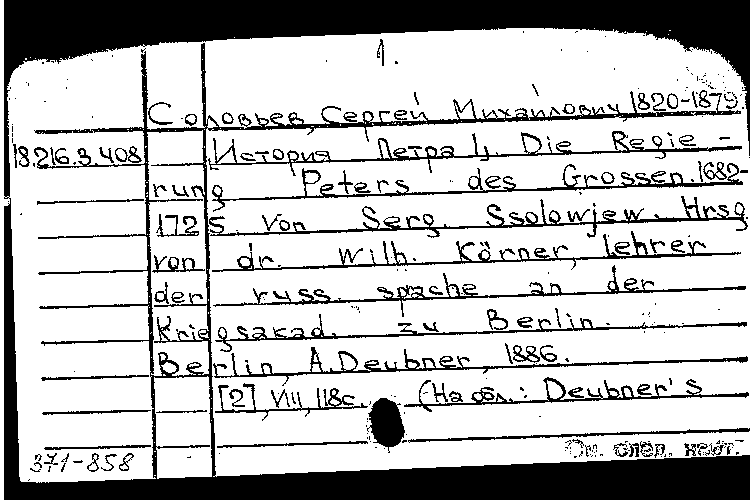 1.
Соловьев, Сергей Михайлович, 1820-1879
18.216.3.408 [История Петра I]. Die Regie-
rung Peters des Grossen. 1682-
1725 von Serg. Ssolowjew. Hrsg
von dr. Wilh. Körner, lehrer
der russ. spache an der
Kriegsakad. zu Berlin.
Berlin, A. Deubner, 1886.
[2], VIII, 118с. (На обл.: Deubner's
371-858 См. след. карт.